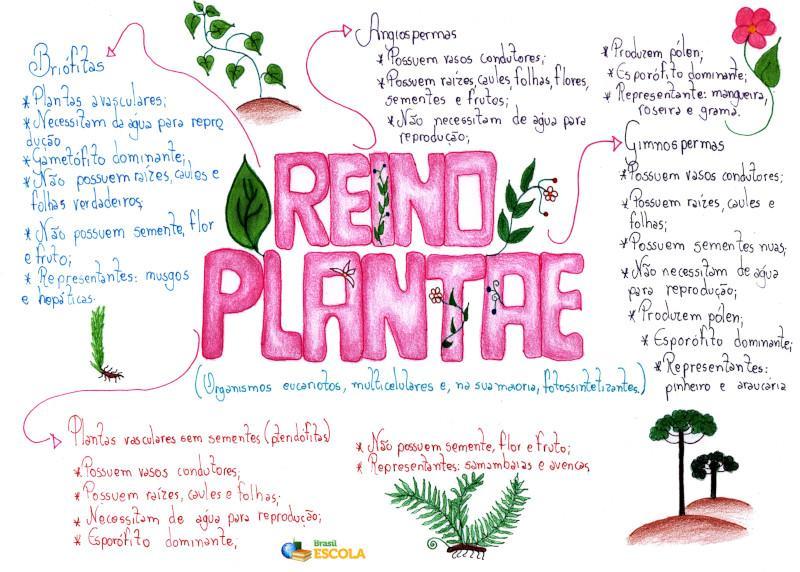 REINO
PLANTAE
(Organismos eucariotos, multicelulares e, na sua maioria, fotossintetizantes.)
Briófitas
* Plantas avasculares;
* Necessitam da água para repro
dução
* Gametófito dominante;
* Não possuem raízes, caules e
folhas verdadeiros;
* Não possuem semente, flor
e fruto;
* Representantes: musgos
e hepáticas.
Angiospermas
* Possuem vasos condutores;
* Possuem raízes, caules, folhas, flores,
sementes e frutos;
* Não necessitam de água para
reprodução;
* Produzem pólen;
* Esporófito dominante;
* Representante: mangueira,
roseira e grama.
Gimnospermas
* Possuem vasos condutores;
* Possuem raízes, caules e
folhas;
* Possuem sementes nuas;
* Não necessitam de água
para reprodução;
* Produzem pólen;
* Esporófito dominante;
* Representantes:
pinheiro e araucária
Plantas vasculares sem sementes (pteridófitas)
* Possuem vasos condutores;
* Possuem raízes, caules e folhas;
* Necessitam de água para reprodução;
* Esporófito dominante,
* Não possuem semente, flor e fruto;
* Representantes: samambaias e avencas
Brasil
ESCOLA